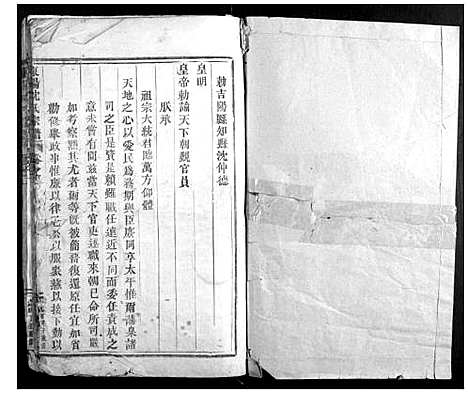 勅吉陽縣知縣沈仲德
皇明
皇帝勅諭天下朝覲官員
朕承
祖宗大統君臨萬方仰體
天地之心以愛民為務期與臣庶同享太平惟爾藩臬諸
司之臣是賛是賴雖職任遠近不同而委任責成之
意未嘗有間茲當天下官吏述職來朝已命所司嚴
加考察黜其尤者爾等旣被簡咨復還原任宜加省
勅修舉政事惟廉以律己公以服衆慈以接下勤以
沈氏宗譜